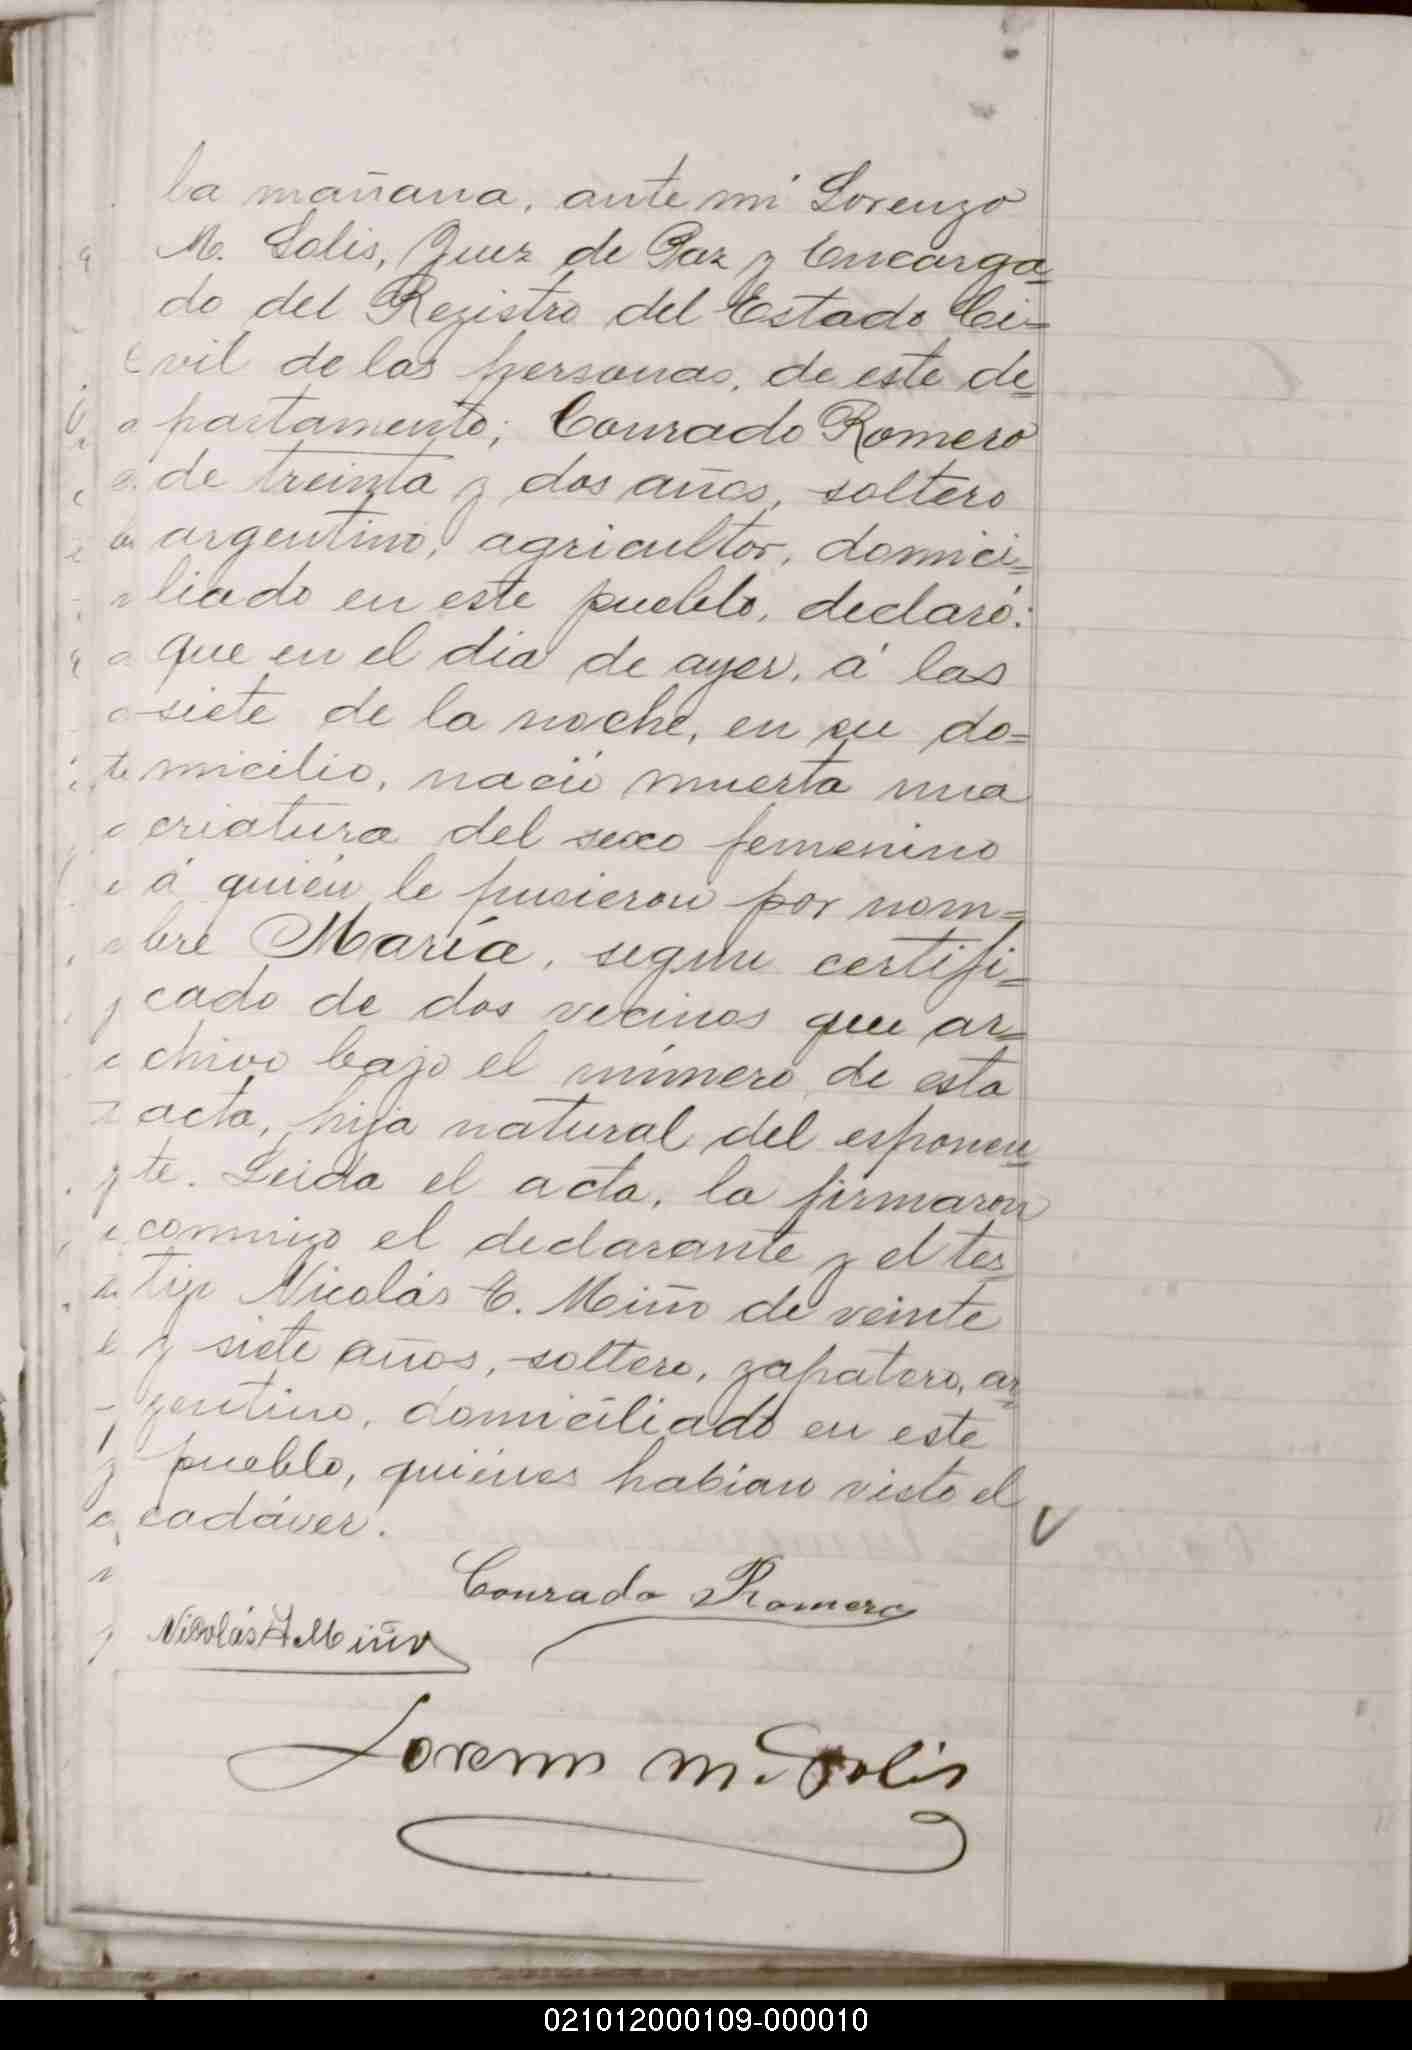 la mañana, ante mi Lorenzo
M. Solis, Juez de Paz y Encarga=
do del Registro del Estado Ci=
vil de las personas, de este de=
partamento; Conrado Romero
de treinta y dos años, soltero
argentino, agricultor, domici=
liado en este pueblo, declaró:
que en el dia de ayer, á las
siete de la noche, en su do=
micilio, nació muerta una
criatura del sexo femenino
á quién le pusieron por nom=
bre María, segun certifi=
cado de dos vecinos que ar=
chivo bajo el número de esta
acta, hija natural del esponen=
te. Leida el acta, la firmaron
conmigo el declarante y el tes=
tigo Nicolás E. Miño de veinte
y siete años, soltero, zapatero, ar=
gentino, domiciliado en este
pueblo, quiénes habian visto el
cadáver.
Conrado Romero
Nicolás Miño
Lorenzo M. Solis
021012000109-000010